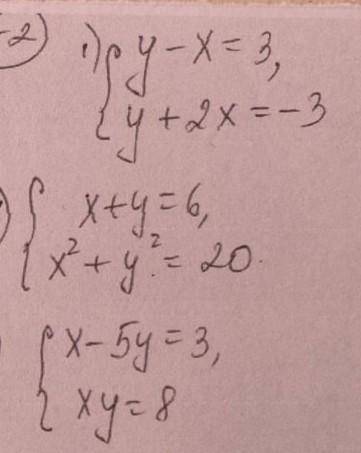 -2) 1) { y - x = 3,
y + 2x = -3
{ x + y = 6,
x² + y² = 20.
{ x - 5y = 3,
xy = 8